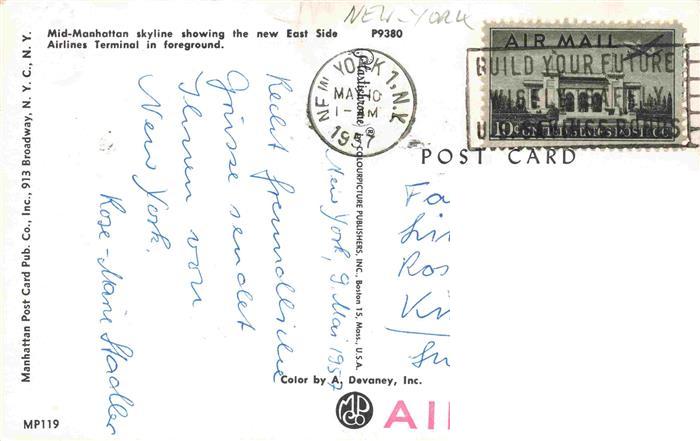 NEW-YORK
Mid-Manhattan skyline showing the new East Side P9380
Airlines Terminal in foreground.
Manhattan Post Card Pub. Co., Inc., 913 Broadway, N. Y. C., N. Y.
Plastichrome ® by COLOURPICTURE PUBLISHERS, INC., Boston 15, Mass., U.S.A.
NEW YORK 1, N.Y.
MAY 10
1957
AIR MAIL
BUILD YOUR FUTURE
WISELY SAFELY
U.S. SAVINGS BONDS
10¢ UNITED STATES POSTAGE
POST CARD
New York, 9. Mai 1957
Recht freundliche
Grüsse sendet
Ihnen von
New York.
Rose-Marie Stadler
Fa
Ros
Color by A. Devaney, Inc.
MPC
AI
MP119